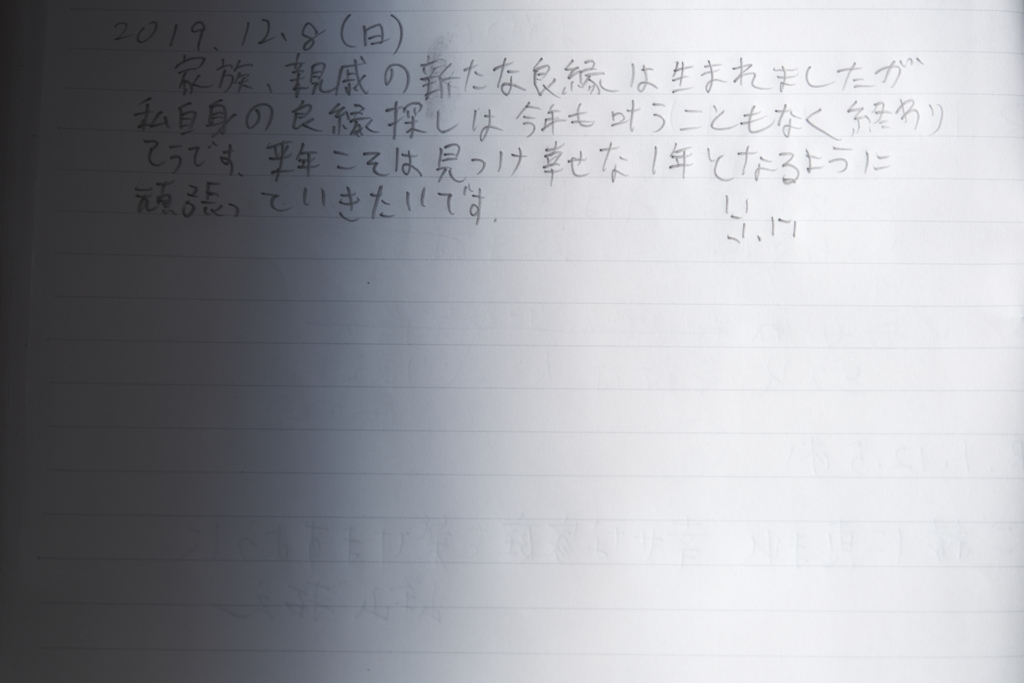 2019.12.8(日)
家族、親戚の新たな良縁は生まれましたが
私自身の良縁探しは今年も叶うこともなく終わり
そうです。来年こそは見つけ幸せな1年となるように
頑張っていきたいです.